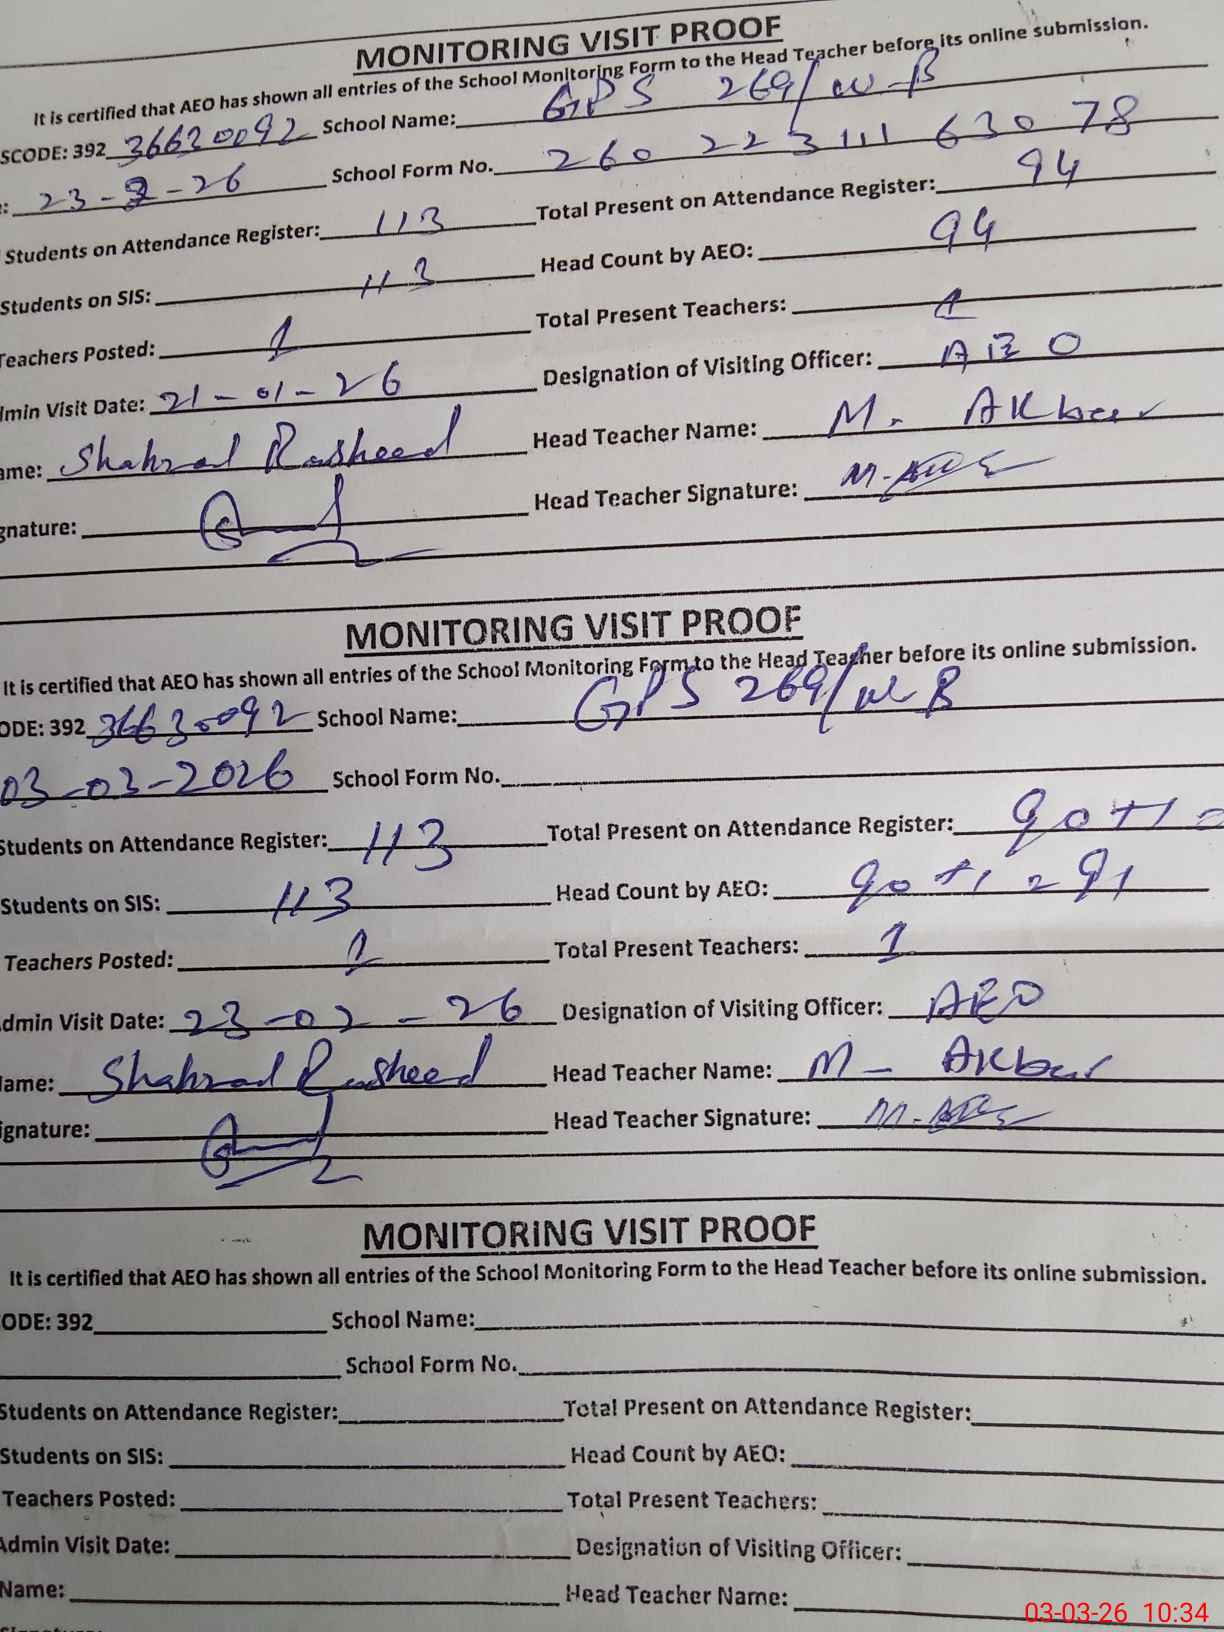 MONITORING VISIT PROOF
It is certified that AEO has shown all entries of the School Monitoring Form to the Head Teacher before its online submission.
SCODE: 392 36630092 School Name: GPS 269/W-B
: 23-2-26 School Form No. 260 223 111 630 78
Students on Attendance Register: 113 Total Present on Attendance Register: 94
Students on SIS: 113 Head Count by AEO: 94
Teachers Posted: 1 Total Present Teachers: 1
dmin Visit Date: 21-01-26 Designation of Visiting Officer: AEO
ame: Shahzad Rasheed Head Teacher Name: M. Akbar
gnature: Head Teacher Signature:
MONITORING VISIT PROOF
It is certified that AEO has shown all entries of the School Monitoring Form to the Head Teacher before its online submission.
ODE: 392 36630092 School Name: GPS 269/W B
03-03-2026 School Form No.
Students on Attendance Register: 113 Total Present on Attendance Register: 90+1
Students on SIS: 113 Head Count by AEO: 90+1 = 91
Teachers Posted: 1 Total Present Teachers: 1
dmin Visit Date: 23-02-26 Designation of Visiting Officer: AEO
ame: Shahzad Rasheed Head Teacher Name: M- Akbar
ignature: Head Teacher Signature:
MONITORING VISIT PROOF
It is certified that AEO has shown all entries of the School Monitoring Form to the Head Teacher before its online submission.
ODE: 392 School Name:
School Form No.
Students on Attendance Register: Total Present on Attendance Register:
Students on SIS: Head Count by AEO:
Teachers Posted: Total Present Teachers:
Admin Visit Date: Designation of Visiting Officer:
Name: Head Teacher Name:
03-03-26 10:34